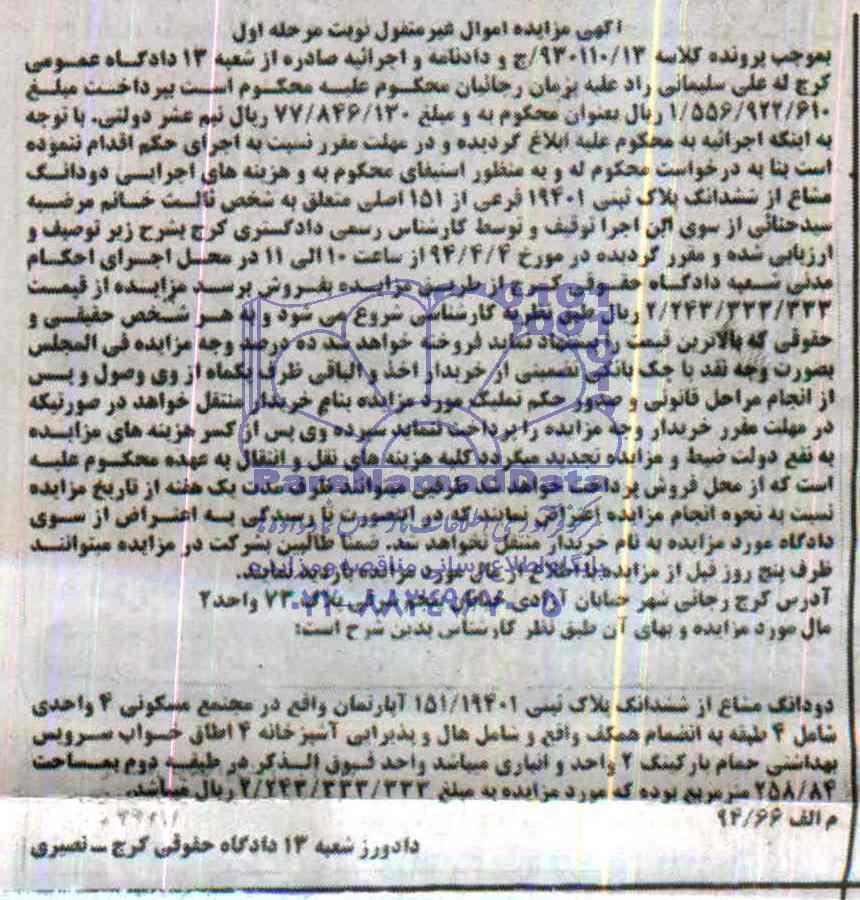 آگهی مزایده اموال غیر منقول نوبت مرحله اول
بموجب پرونده کلاسه ۹۳۰۱۱۰/۱۳/ج و دادنامه و اجرائیه صادره از شعبه ۱۳ دادگاه عمومی
کرج له علی سلیمانی راد علیه پژمان رجائیان محکوم علیه محکوم است بپرداخت مبلغ
۱/۵۵۶/۹۲۲/۶۱۰ ریال بعنوان محکوم به و مبلغ ۷۷/۸۴۶/۱۳۰ ریال نیم عشر دولتی، با توجه
به اینکه اجرائیه به محکوم علیه ابلاغ گردیده و در مهلت مقرر نسبت به اجرای حکم اقدام ننموده
است بنا به درخواست محکوم له و به منظور استیفای محکوم به و هزینه های اجرایی دودانگ
مشاع از ششدانگ پلاک ثبتی ۱۹۴۰۱ فرعی از ۱۵۱ اصلی متعلق به شخص ثالث خانم مرضیه
سیدحنائی از سوی این اجرا توقیف و توسط کارشناس رسمی دادگستری کرج بشرح زیر توصیف و
ارزیابی شده و مقرر گردیده در مورخ ۹۴/۴/۴ از ساعت ۱۰ الی ۱۱ در محل اجرای احکام
مدنی شعبه دادگاه حقوقی کرج از طریق مزایده بفروش برسد مزایده از قیمت
۲/۲۴۳/۳۳۳/۳۳۳ ریال طبق نظریه کارشناسی شروع می شود و به هر شخص حقیقی و
حقوقی که بالاترین قیمت را پیشنهاد نماید فروخته خواهد شد ده درصد وجه مزایده فی المجلس
بصورت وجه نقد یا چک بانکی تضمینی از خریدار اخذ و الباقی ظرف یکماه از وی وصول و پس
از انجام مراحل قانونی و صدور حکم تملیک مورد مزایده بنام خریدار منتقل خواهد در صورتیکه
در مهلت مقرر خریدار وجه مزایده را پرداخت ننماید سپرده وی پس از کسر هزینه های مزایده
به نفع دولت ضبط و مزایده تجدید میگردد کلیه هزینه های نقل و انتقال به عهده محکوم علیه
است که از محل فروش پرداخت خواهد شد طرفین میتوانند ظرف مدت یک هفته از تاریخ مزایده
نسبت به نحوه انجام مزایده اعتراض نمایند که در اینصورت تا رسیدگی به اعتراض از سوی
دادگاه مورد مزایده به نام خریدار منتقل نخواهد شد. ضمنا طالبین بشرکت در مزایده میتوانند
ظرف پنج روز قبل از مزایده با اطلاع از مال مورد مزایده بازدید نمایند.
آدرس کرج رجائی شهر خیابان آزادی خیابان پنجم شرقی پلاک ۷۳ واحد۲
مال مورد مزایده و بهای آن طبق نظر کارشناس بدین شرح است:
دودانگ مشاع از ششدانگ پلاک ثبتی ۱۵۱/۱۹۴۰۱ آپارتمان واقع در مجتمع مسکونی ۴ واحدی
شامل ۴ طبقه به انضمام همکف واقع و شامل هال و پذیرایی آشپزخانه ۴ اطاق خواب سرویس
بهداشتی حمام پارکینگ ۲ واحد و انباری میباشد واحد فوق الذکر در طبقه دوم بمساحت
۲۵۸/۸۴ مترمربع بوده که مورد مزایده به مبلغ ۲/۲۴۳/۳۳۳/۳۳۳ ریال میباشد.
م الف ۹۴/۶۶
دادورز شعبه ۱۳ دادگاه حقوقی کرج ــ نصیری
ParsNamadData
پایگاه اطلاع رسانی مناقصه و مزایده
۰۲۱-۸۸۳۴۹۶۷۰-۵